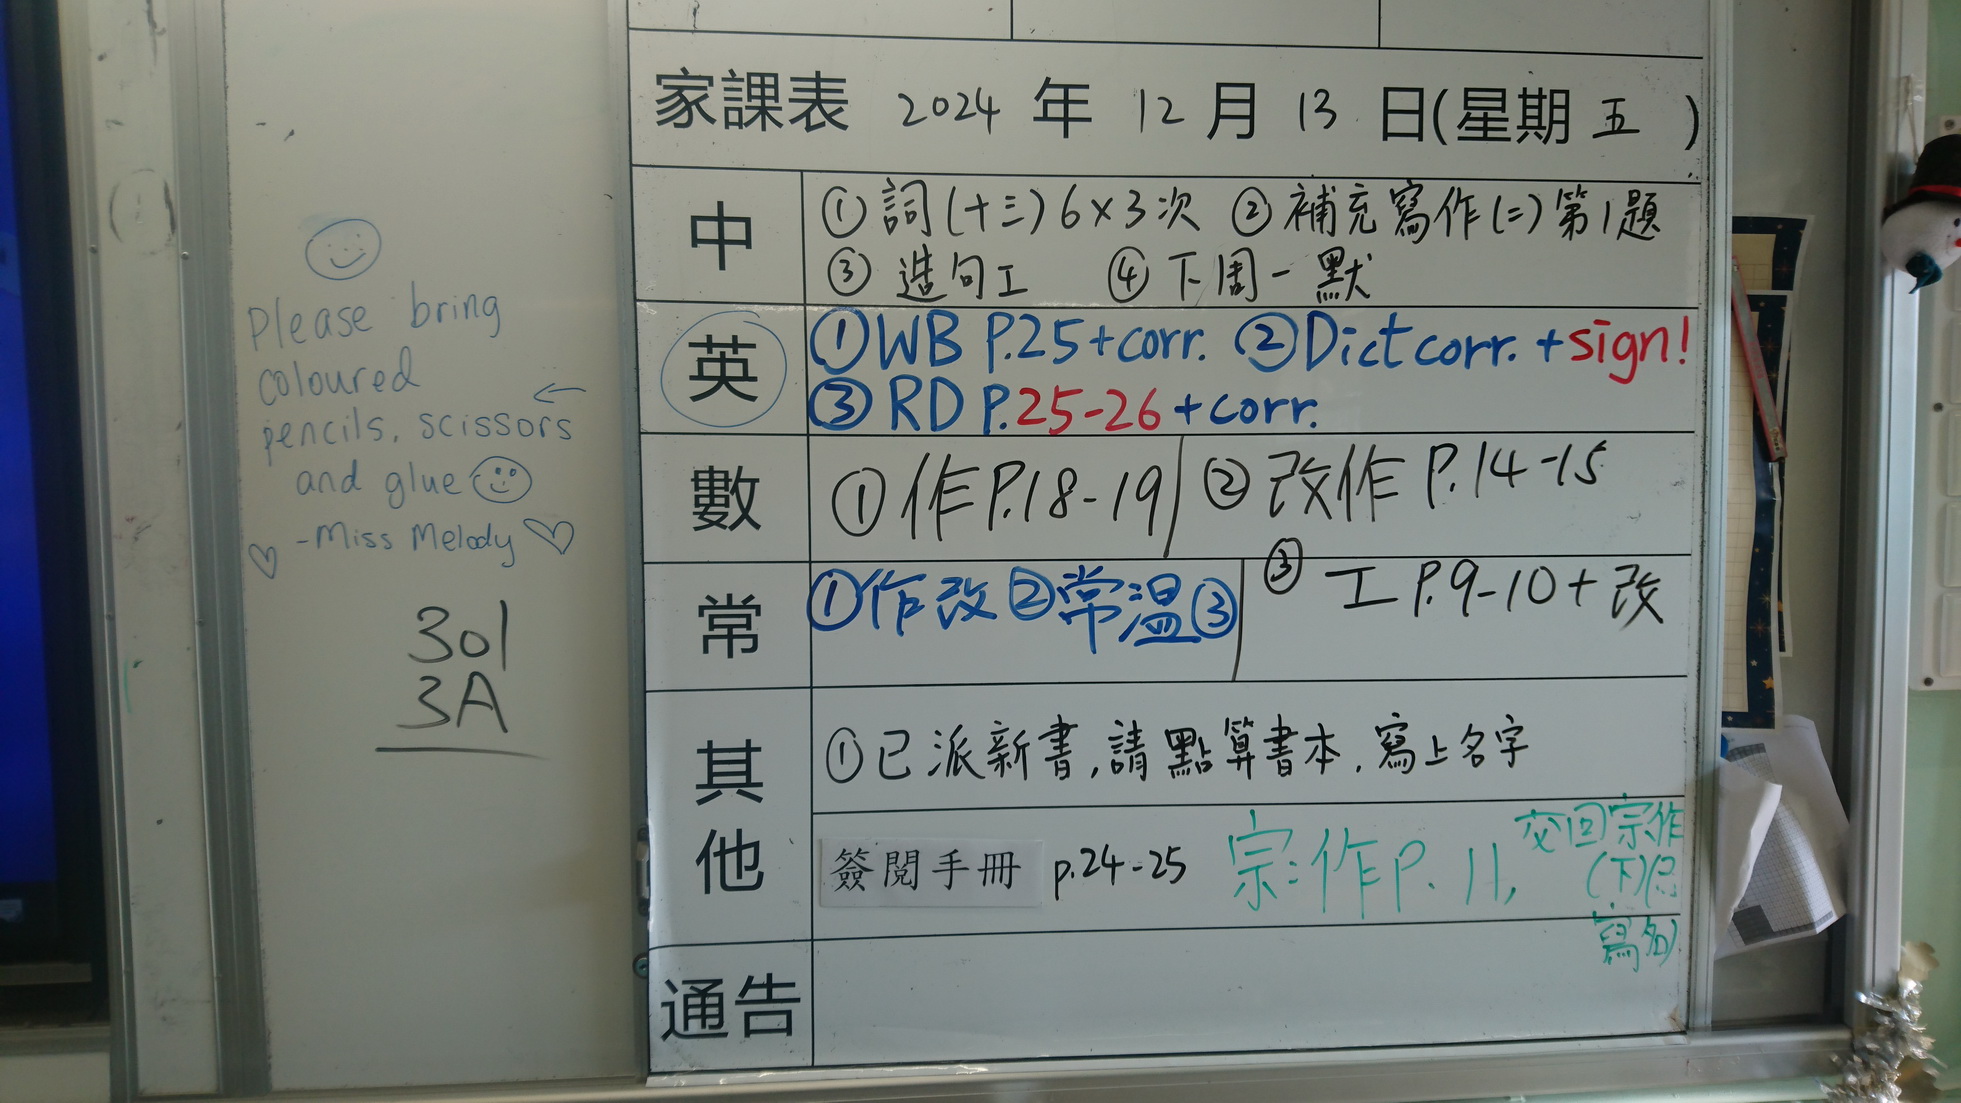 Please bring
coloured
pencils, scissors
and glue
-Miss Melody
301
3A
家課表 2024 年 12 月 13 日(星期 五 )
中
①詞(十三)6×3次 ②補充寫作(二)第1題
③ 造句工 ④下周一默
英
①WB P.25+corr. ②Dict corr. +sign!
③RD P.25-26+corr.
數
①作P.18-19 ②改作 P.14-15
③ 工 P.9-10+改
常
①作改②常溫③
其他
①已派新書,請點算書本,寫上名字
簽閱手冊 p.24-25
宗:作P. 11,
交回宗作
(下)(忌
寫名)
通告